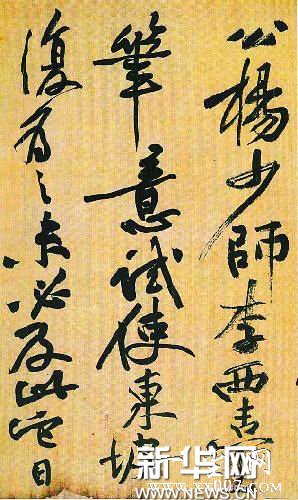 公楊少師李西臺
筆意試使東坡
復為之未必及此它日
新华网
WWW.NEWS.CN